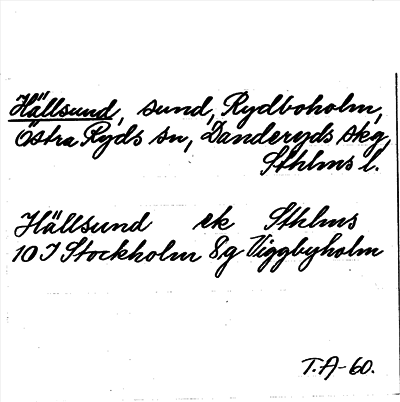 Hällsund, sund, Rydboholm,
Östra Ryds sn, Danderyds skg,
Sthlms l.
Hällsund ek Sthlms
10 I Stockholm 8g Viggbyholm
T.A-60.